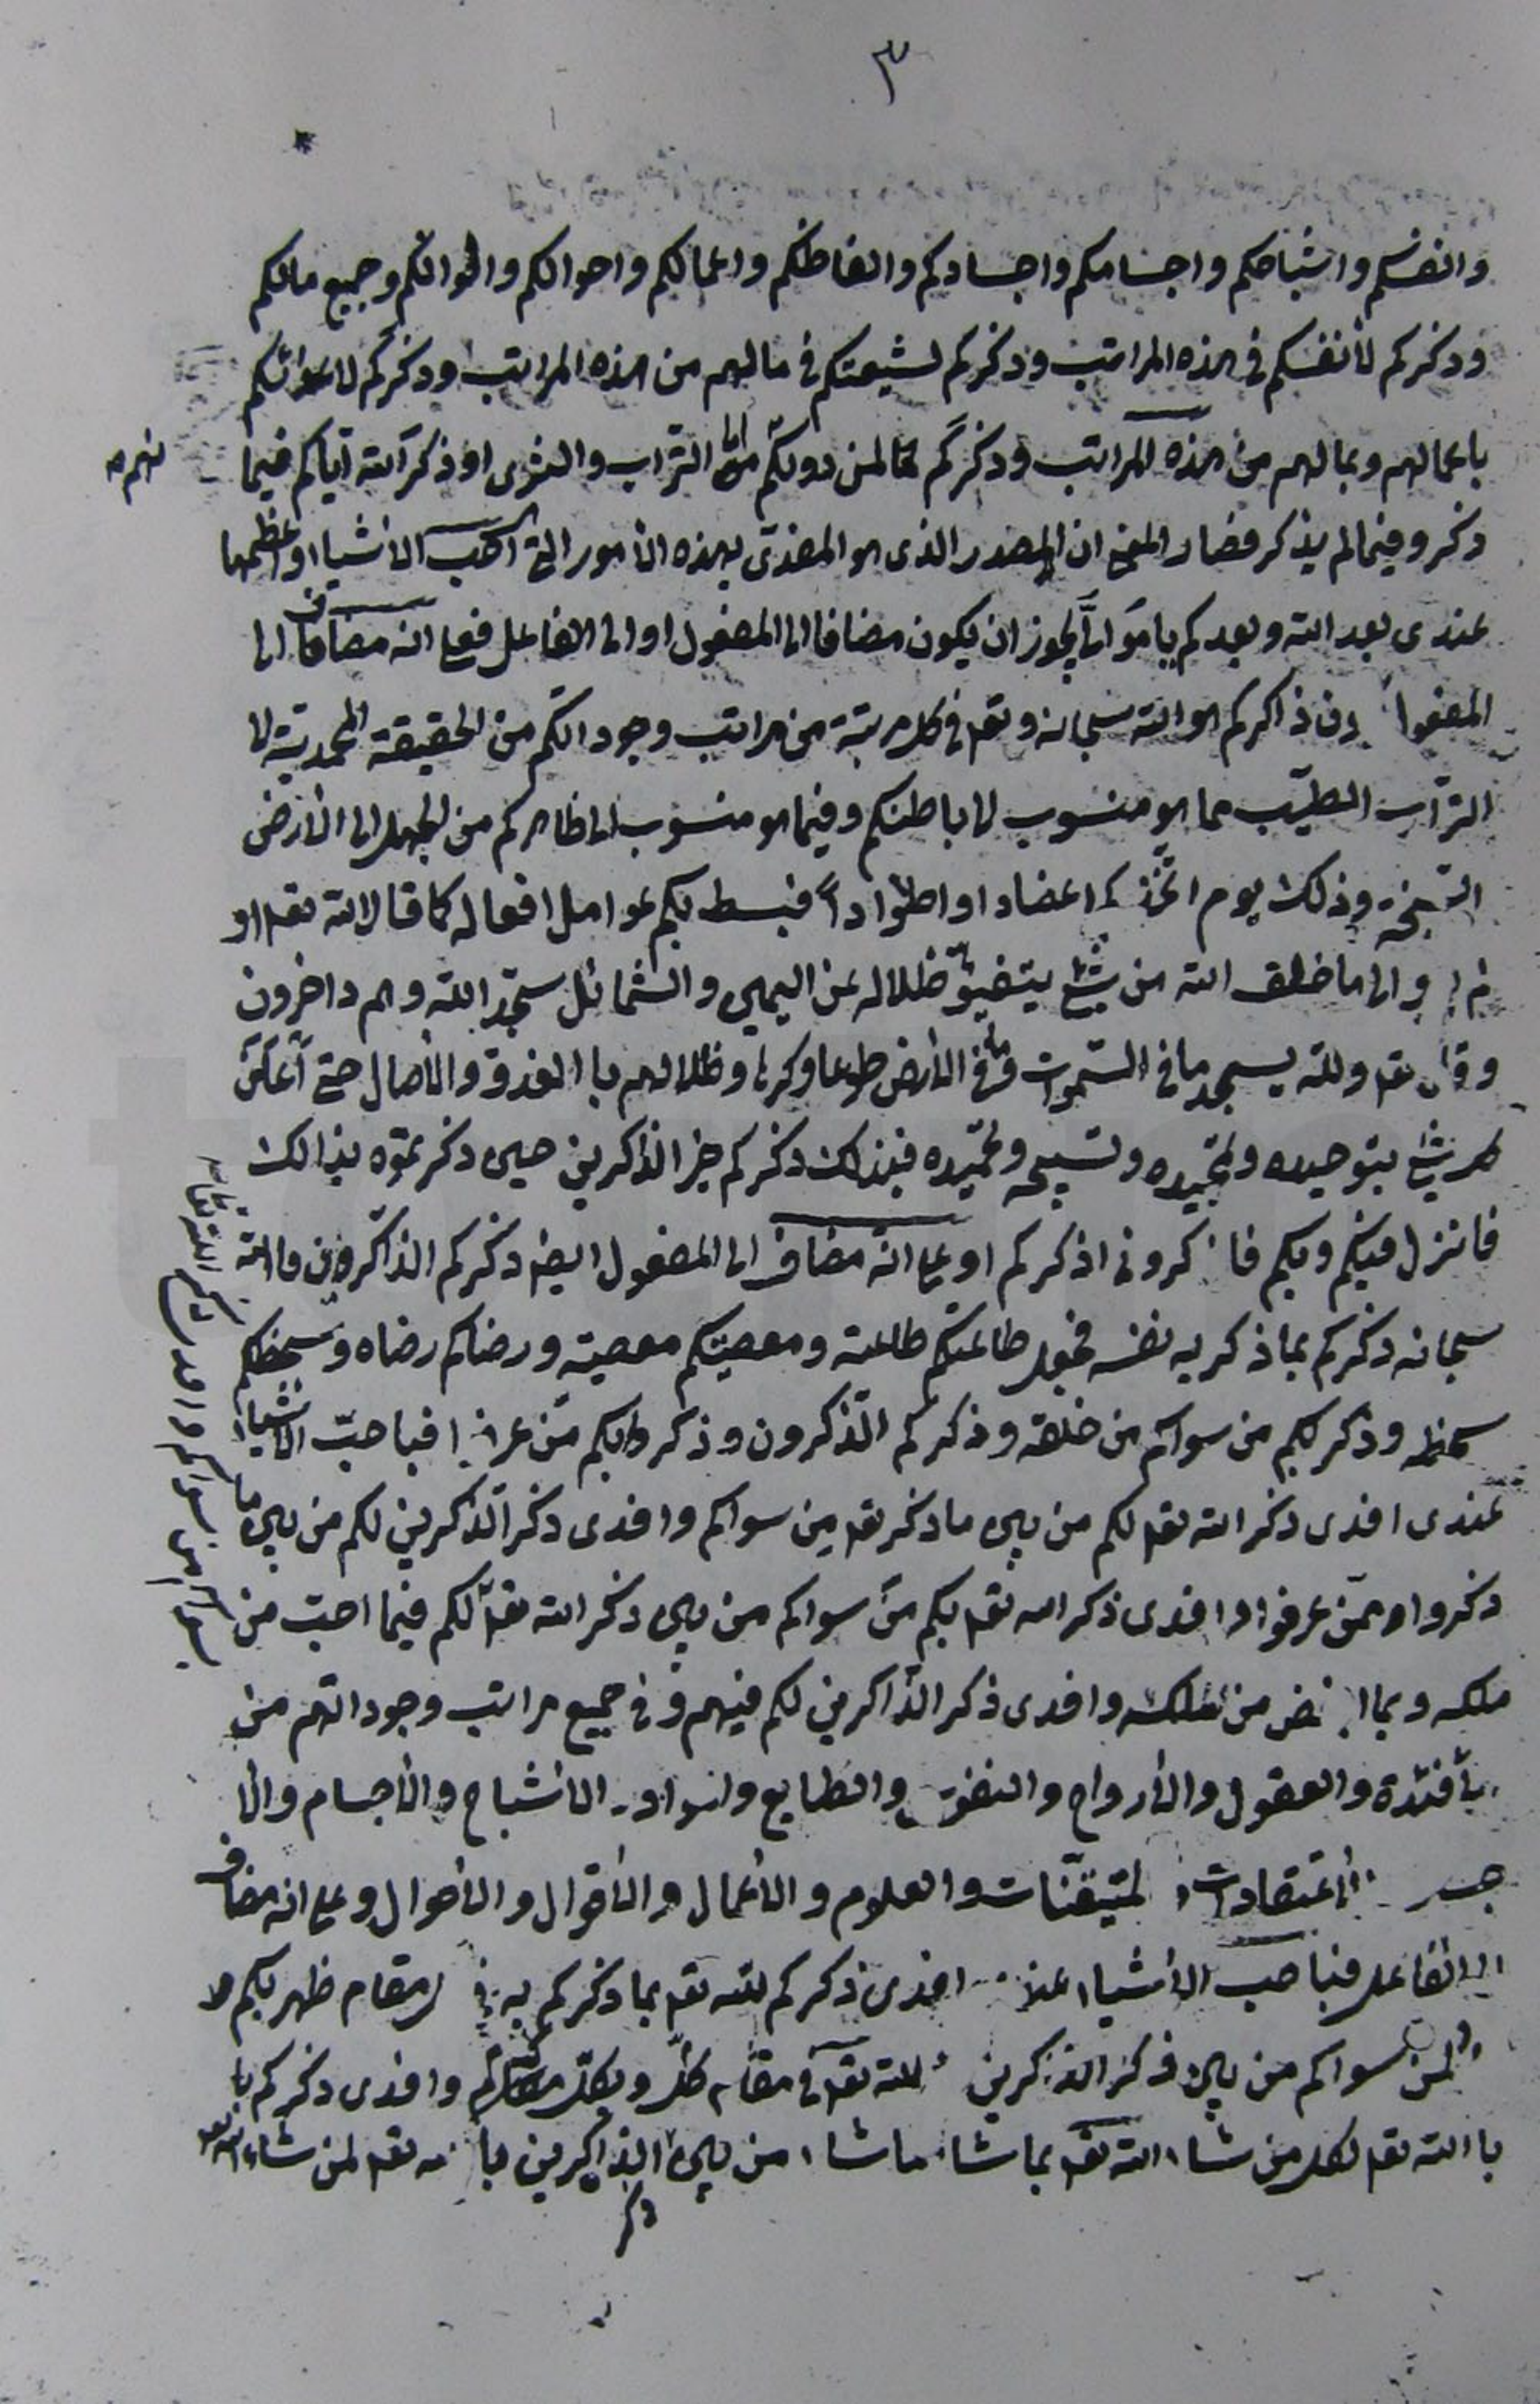 ٣
وانفسكم واشباحكم واجسامكم واجسادكم والفاظكم واعمالكم واحوالكم واقوالكم وجميع مالكم
وذكركم لأنفسكم فى هذه المراتب وذكركم لشيعتكم فى مالهم من هذه المراتب وذكركم لاعدائكم
باعمالهم وبمالهم من هذه المراتب وذكركم لمن دونكم الى التراب والثرى او ذكر الله اياكم فيما
ذكر وفيما لم يذكر فصار المعنى ان المصدر الذى هو المفدّى بهذه الأمور التى احب الاشياء واعظمها
عندى بعد الله وبعدكم يا موالىّ يجوز ان يكون مضافا الى المفعول او الى الفاعل فعلى انه مضاف الى
المفعول فذاكركم هو الله سبحانه وتعـ فى كل مرتبة من مراتب وجوداتكم من الحقيقة المحمدية لا
التراب الطيّب مما هو منسوب لا باطنكم وفيما هو منسوب الى ظاهركم من الجهل الى الأرض
السّبخة وذلك يوم اتخذكم اعضادا واطوادا فبسط بكم عوامل افعاله كما قال الله تعـ او
لم يروا الى ما خلق الله من شئ يتفيّؤ ظلاله عن اليمين والشمائل سجّدا لله وهم داخرون
وقال تعـ ولله يسجد ما فى السّموات وما فى الأرض طوعا وكرها وظلالهم با الغدوّ والأصال حتى اعلن
كل شئ بتوحيده وتمجيده وتسبيحه وتحميده فبذلك ذكركم خير الذاكرين حين ذكر نفوه بذالك
فانزل فيكم وبكم فاذكرونى اذكركم او على انه مضاف الى المفعول ايضا ذكركم الذاكرون فالله
سبحانه ذكركم بما ذكر به نفسه فجعل طاعتكم طاعته ومعصيتكم معصيته ورضاكم رضاه وسخطكم
سخطه وذكر بكم من سواكم من خلقه وذكركم الذّاكرون وذكروا بكم من عرفوا فباحبّ الاشياء
عندى افدى ذكر الله تعـ لكم من بين ما ذكر تعـ من سواكم وافدى ذكر الذّاكرين لكم من بين ما
ذكروا ممّن عرفوا وافدى ذكر الله تعـ بكم من سواكم من بين ذكر الله تعـ لكم فيما احبّ من
ملكه وبما ابغض من ملكه وافدى ذكر الذّاكرين لكم فيهم وفى جميع مراتب وجوداتهم من
الأفئدة والعقول والأرواح والنفوس والطبايع والمواد الاشباح والأجسام والأ
جساد الأعتقادات المتيقّنات والعلوم والأعمال والأقوال والأحوال وعلى انه مضاف
الى الفاعل فباحب الأشياء عندى افدى ذكركم لله تعـ بما ذكركم به فى كل مقام ظهر بكم
لمن سواكم من بين ذكر الذاكرين لله تعـ فى مقام كلّ وبكلّ وافدى ذكركم با
با الله تعـ لكل من شاء الله تعـ بما شاء ما شاء من بين ذكر الذاكرين با لله تعـ لمن شاء الله